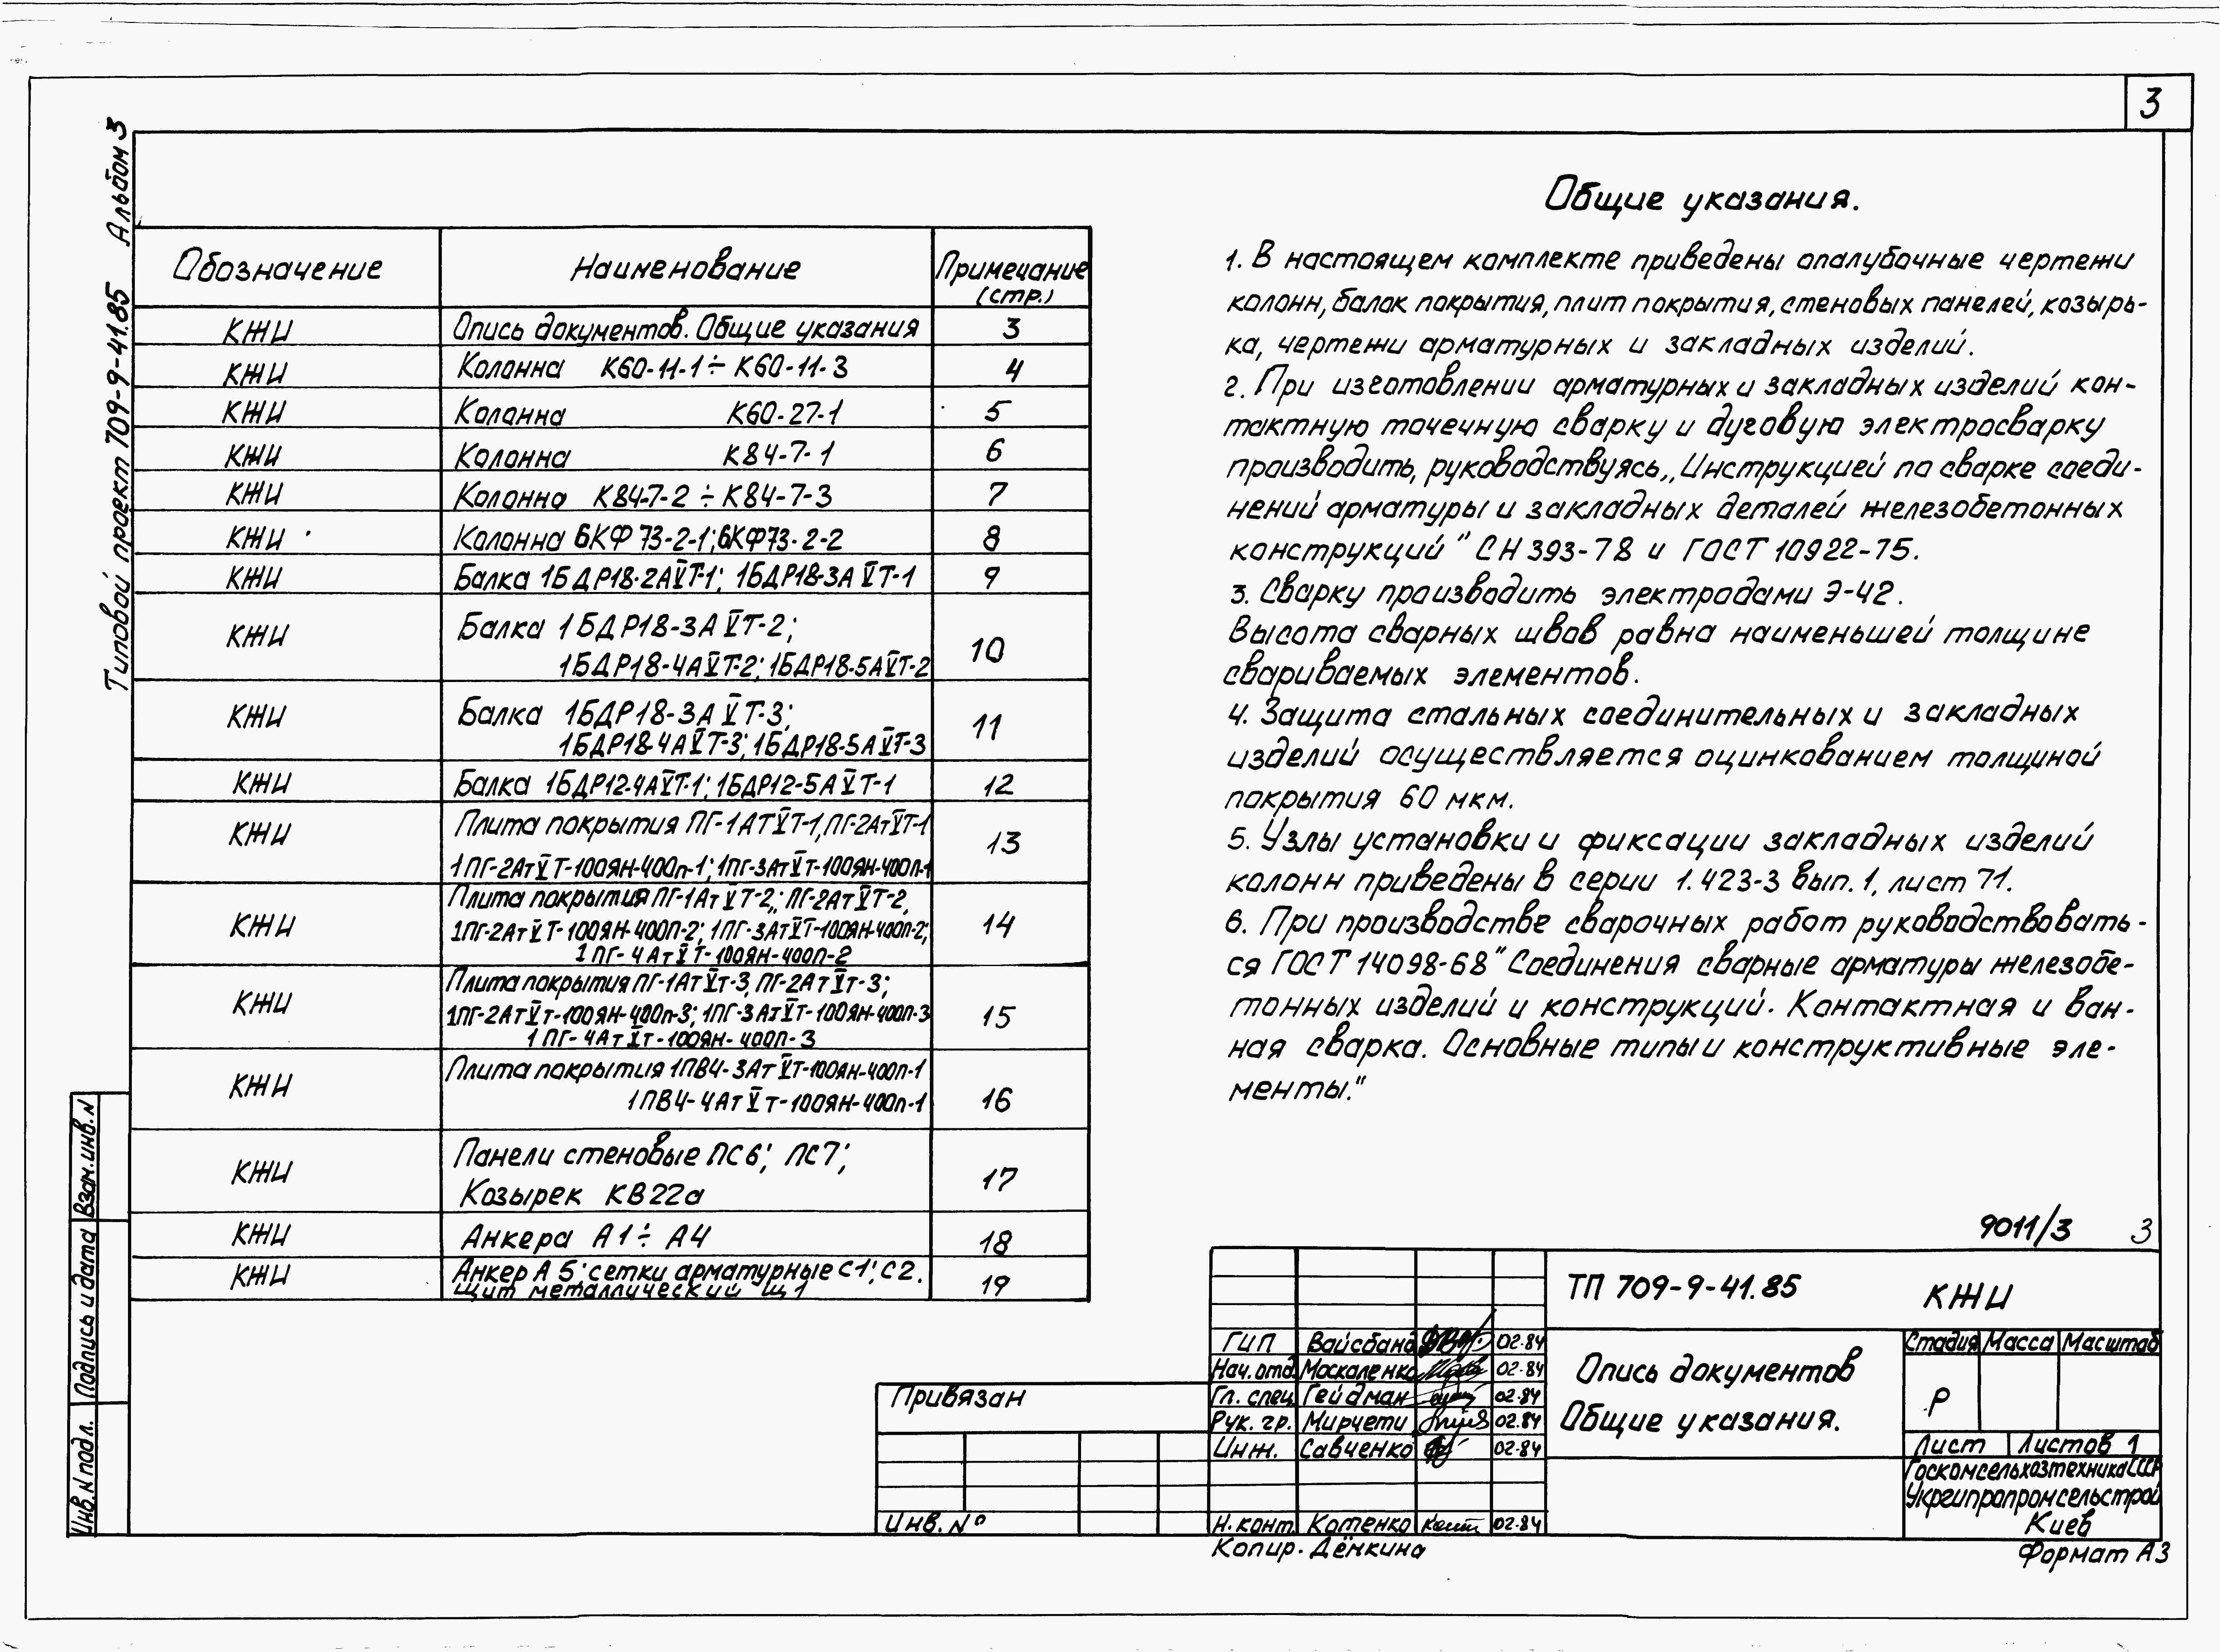 3
Типовой проект 709-9-41.85 Альбом 3
Обозначение Наименование Примечание (стр.)
КЖИ Опись документов. Общие указания 3
КЖИ Колонна К60-11-1÷К60-11-3 4
КЖИ Колонна К60-27-1 5
КЖИ Колонна К84-7-1 6
КЖИ Колонна К84-7-2÷К84-7-3 7
КЖИ Колонна 6КФ73-2-1; 6КФ73-2-2 8
КЖИ Балка 1БДР18-2АⅤТ-1; 1БДР18-3АⅤТ-1 9
КЖИ Балка 1БДР18-3АⅤТ-2;
1БДР18-4АⅤТ-2; 1БДР18-5АⅤТ-2 10
КЖИ Балка 1БДР18-3АⅤТ-3;
1БДР18-4АⅤТ-3; 1БДР18-5АⅤТ-3 11
КЖИ Балка 1БДР12-4АⅤТ-1; 1БДР12-5АⅤТ-1 12
КЖИ Плита покрытия ПГ-1АТⅤТ-1, ПГ-2АтⅤТ-1
1ПГ-2АтⅤТ-100ЯН-400п-1; 1ПГ-3АтⅤТ-100ЯН-400п-1 13
КЖИ Плита покрытия ПГ-1АтⅤТ-2; ПГ-2АтⅤТ-2,
1ПГ-2АтⅤТ-100ЯН-400П-2; 1ПГ-3АтⅤТ-100ЯН-400П-2;
1ПГ-4АтⅤТ-100ЯН-400П-2 14
КЖИ Плита покрытия ПГ-1АтⅤт-3, ПГ-2АтⅤт-3;
1ПГ-2АтⅤт-100ЯН-400п-3; 1ПГ-3АтⅤТ-100ЯН-400П-3
1ПГ-4АтⅤт-100ЯН-400П-3 15
КЖИ Плита покрытия 1ПВ4-3АтⅤТ-100ЯН-400П-1
1ПВ4-4АтⅤт-100ЯН-400п-1 16
КЖИ Панели стеновые ПС6; ПС7;
Козырек КВ22а 17
КЖИ Анкера А1÷А4 18
КЖИ Анкер А5; сетки арматурные С1; С2.
Щит металлический Щ1 19
Общие указания.
1. В настоящем комплекте приведены опалубочные чертежи
колонн, балок покрытия, плит покрытия, стеновых панелей, козырь-
ка, чертежи арматурных и закладных изделий.
2. При изготовлении арматурных и закладных изделий кон-
тактную точечную сварку и дуговую электросварку
производить, руководствуясь „Инструкцией по сварке соеди-
нений арматуры и закладных деталей железобетонных
конструкций" СН 393-78 и ГОСТ 10922-75.
3. Сварку производить электродами Э-42.
Высота сварных швов равна наименьшей толщине
свариваемых элементов.
4. Защита стальных соединительных и закладных
изделий осуществляется оцинкованием толщиной
покрытия 60 мкм.
5. Узлы установки и фиксации закладных изделий
колонн приведены в серии 1.423-3 вып. 1, лист 71.
6. При производстве сварочных работ руководствовать-
ся ГОСТ 14098-68 "Соединения сварные арматуры железобе-
тонных изделий и конструкций. Контактная и ван-
ная сварка. Основные типы и конструктивные эле-
менты."
9011/3 3
ТП 709-9-41.85 КЖИ
ГИП Вайсбанд 02.84
Нач. отд. Москаленко 02.84
Гл. спец. Гейдман 02.84
Рук. гр. Мирчети 02.84
Инж. Савченко 02.84
Н. конт. Котенко 02.84
Опись документов
Общие указания.
Стадия Масса Масштаб
Р
Лист Листов 1
Госкомсельхозтехника СССР
Укргипропромсельстрой
Киев
Привязан
Инв. №
Копир. Дёмкина
Формат А3
Взам. инв. N
Подпись и дата
Инв. N подл.